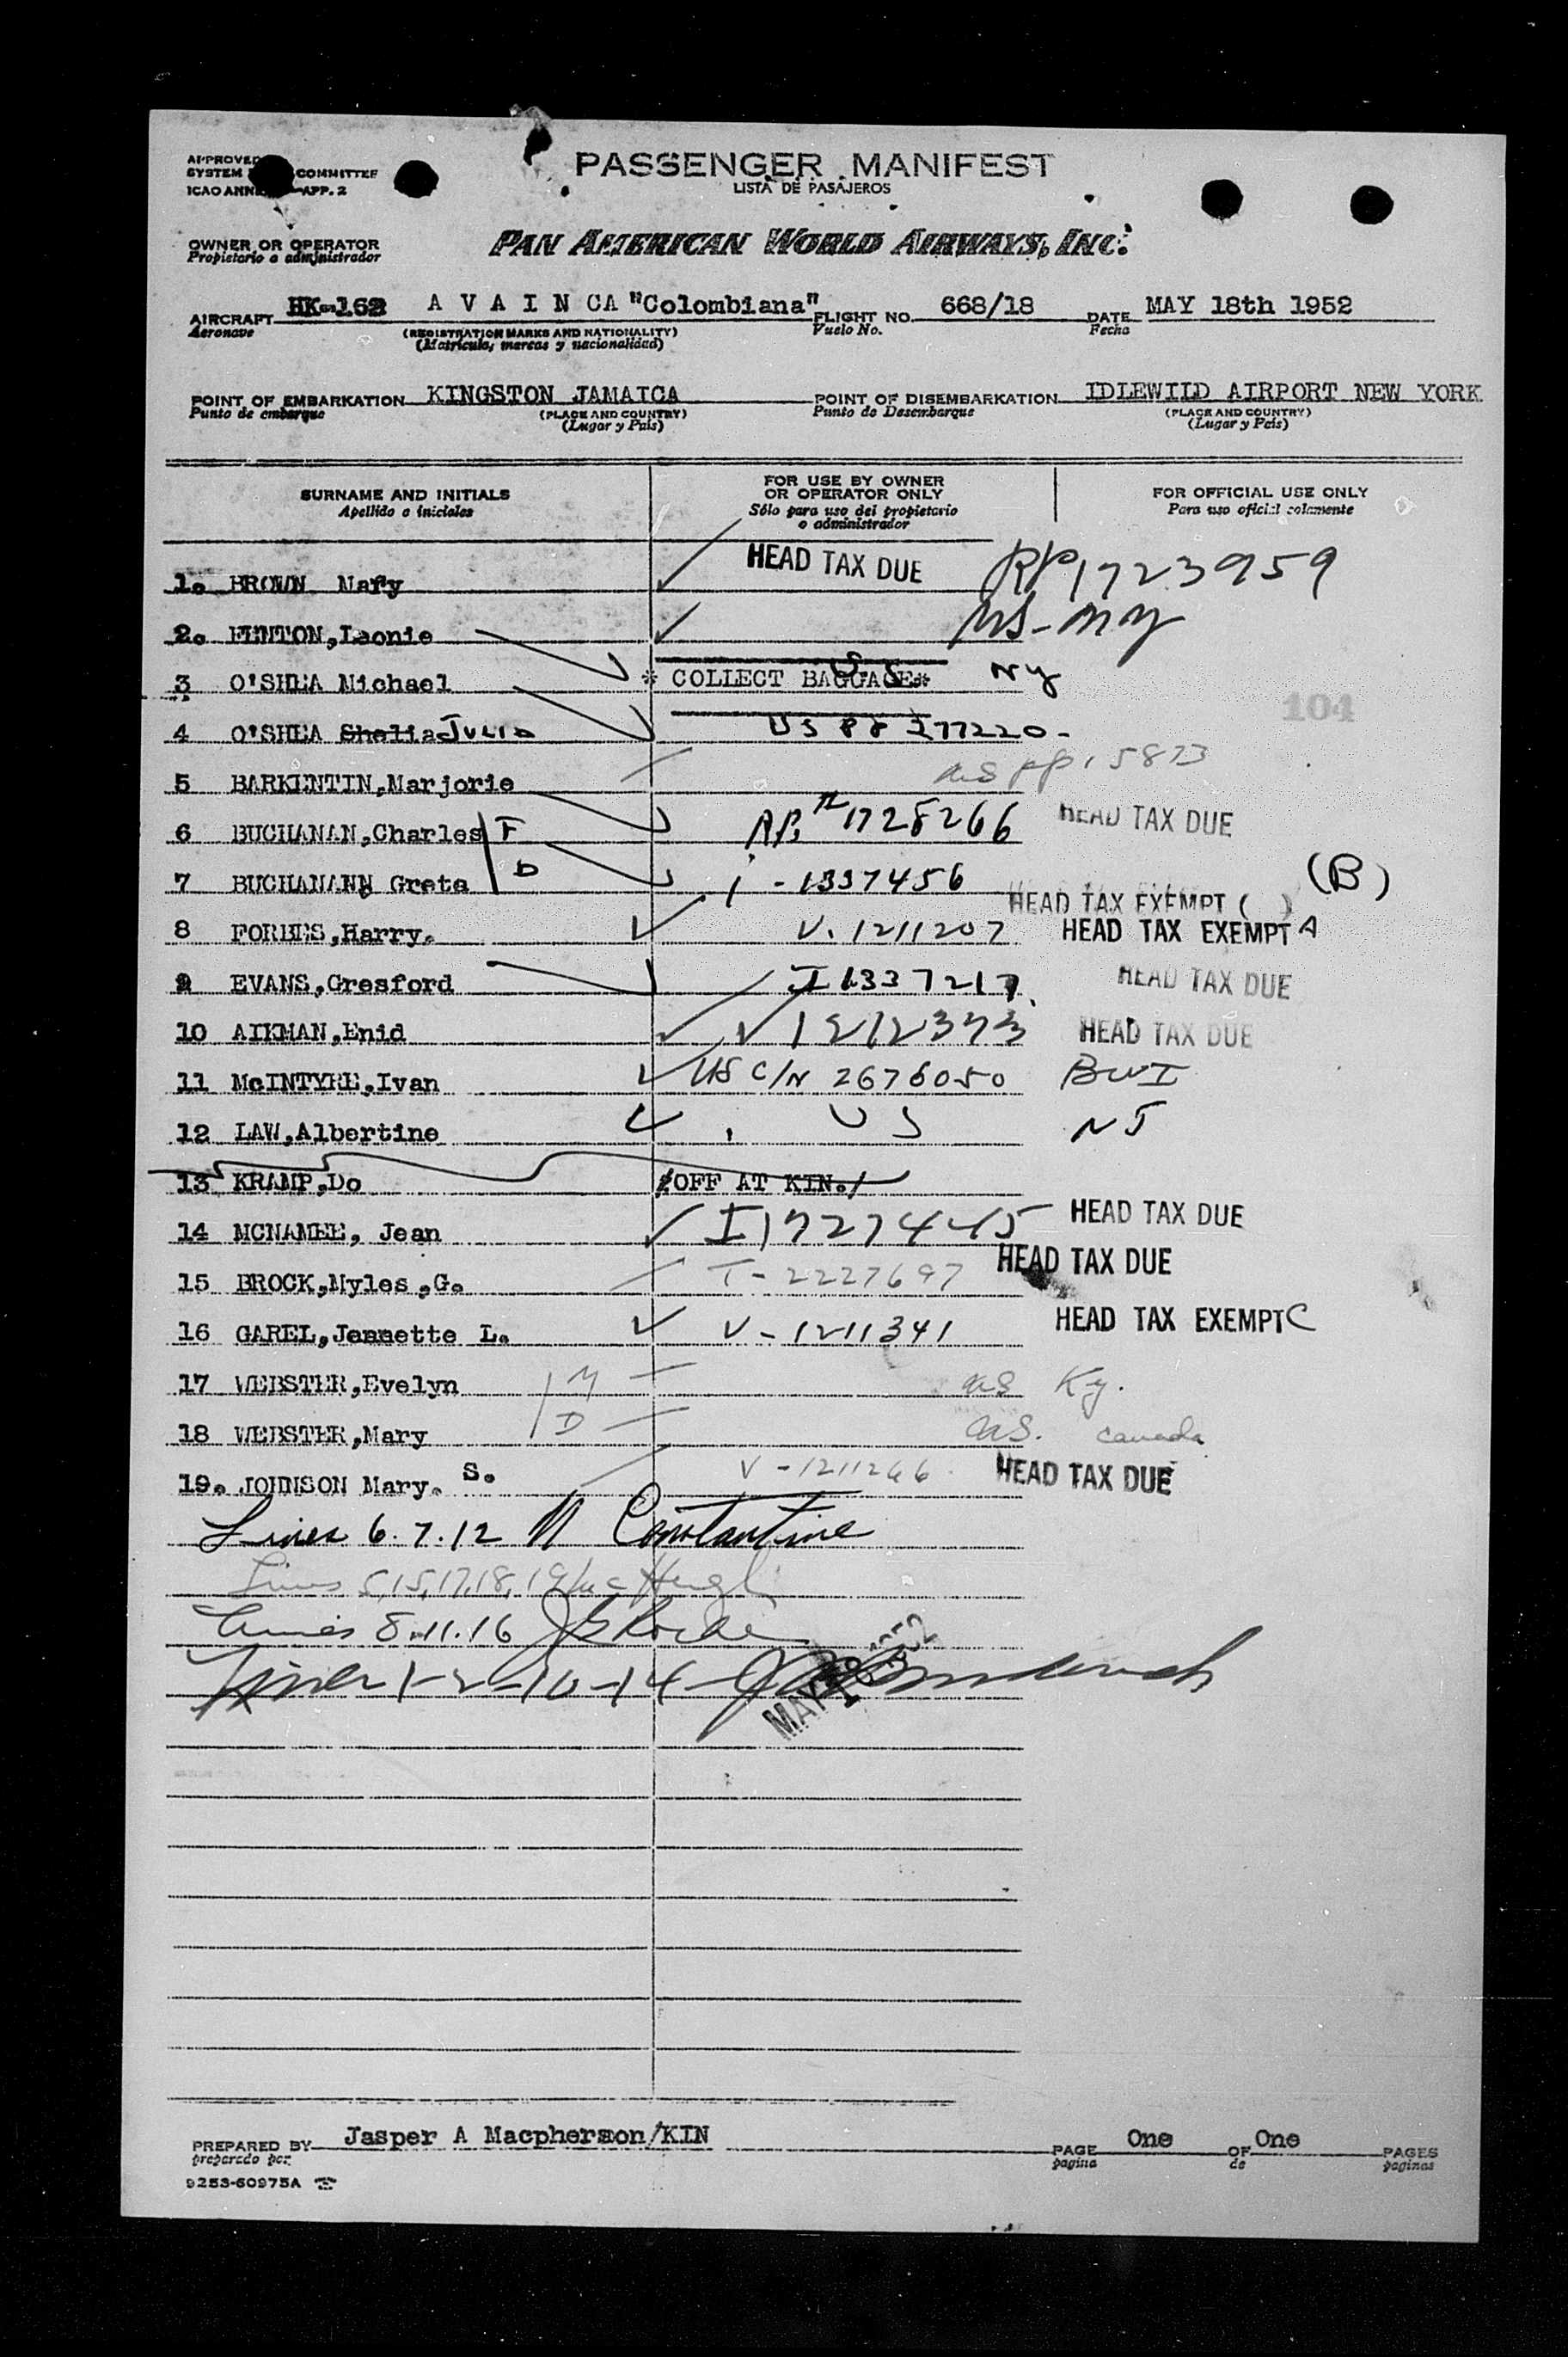 APPROVED COMMITTEE
SYSTEM
ICAO ANN APP. 2
PASSENGER MANIFEST
LISTA DE PASAJEROS
OWNER OR OPERATOR
Propietario o administrador
PAN AMERICAN WORLD AIRWAYS, INC.
AIRCRAFT HK-162 A V A I N CA "Colombiana" FLIGHT NO. 668/18 DATE MAY 18th 1952
Aeronave (REGISTRATION MARKS AND NATIONALITY) Vuelo No. Fecha
(Matrícula, marcas y nacionalidad)
POINT OF EMBARKATION KINGSTON JAMAICA POINT OF DISEMBARKATION IDLEWILD AIRPORT NEW YORK
Punto de embarque (PLACE AND COUNTRY) Punto de Desembarque (PLACE AND COUNTRY)
(Lugar y País) (Lugar y País)
SURNAME AND INITIALS FOR USE BY OWNER OR OPERATOR ONLY FOR OFFICIAL USE ONLY
Apellido o iniciales Sólo para uso del propietario o administrador Para uso oficial solamente
1. BROWN Mary HEAD TAX DUE RP1723959
2. FENTON,Leonie US-NY
3 O'SHEA Michael * COLLECT BAGGAGE* U.S. NY
4 O'SHEA Shelia JULIA US PP 277220-
5 BARKENTIN,Marjorie US PP 15873
6 BUCHANAN,Charles F RP.# 1728266 HEAD TAX DUE
7 BUCHANANN Greta D i-1337456 HEAD TAX EXEMPT ( ) (B)
8 FORBES,Harry. V. 1211207 HEAD TAX EXEMPT A
9 EVANS,Gresford I 1337217 HEAD TAX DUE
10 AIKMAN,Enid V 1212373 HEAD TAX DUE
11 McINTYRE,Ivan US C/N 2676050 BWI
12 LAW,Albertine US NJ
13 KRAMP,Do /OFF AT KIN./
14 MCNAMEE, Jean I1727445 HEAD TAX DUE
15 BROCK,Myles,G. T-2227697 HEAD TAX DUE
16 GAREL,Jeannette L. V-1211341 HEAD TAX EXEMPT C
17 WEBSTER,Evelyn M US Ky.
18 WEBSTER,Mary D US. Canada
19. JOHNSON Mary. S. V-1211266 HEAD TAX DUE
Lines 6.7.12 N Constantine
Lines 5,15,17,18,19
Lines 8.11.16
Lines 1-2-10-14-
MAY 18 1952
104
PREPARED BY Jasper A Macpherson/KIN PAGE One OF One PAGES
preparado por pagina de paginas
9253-60975A